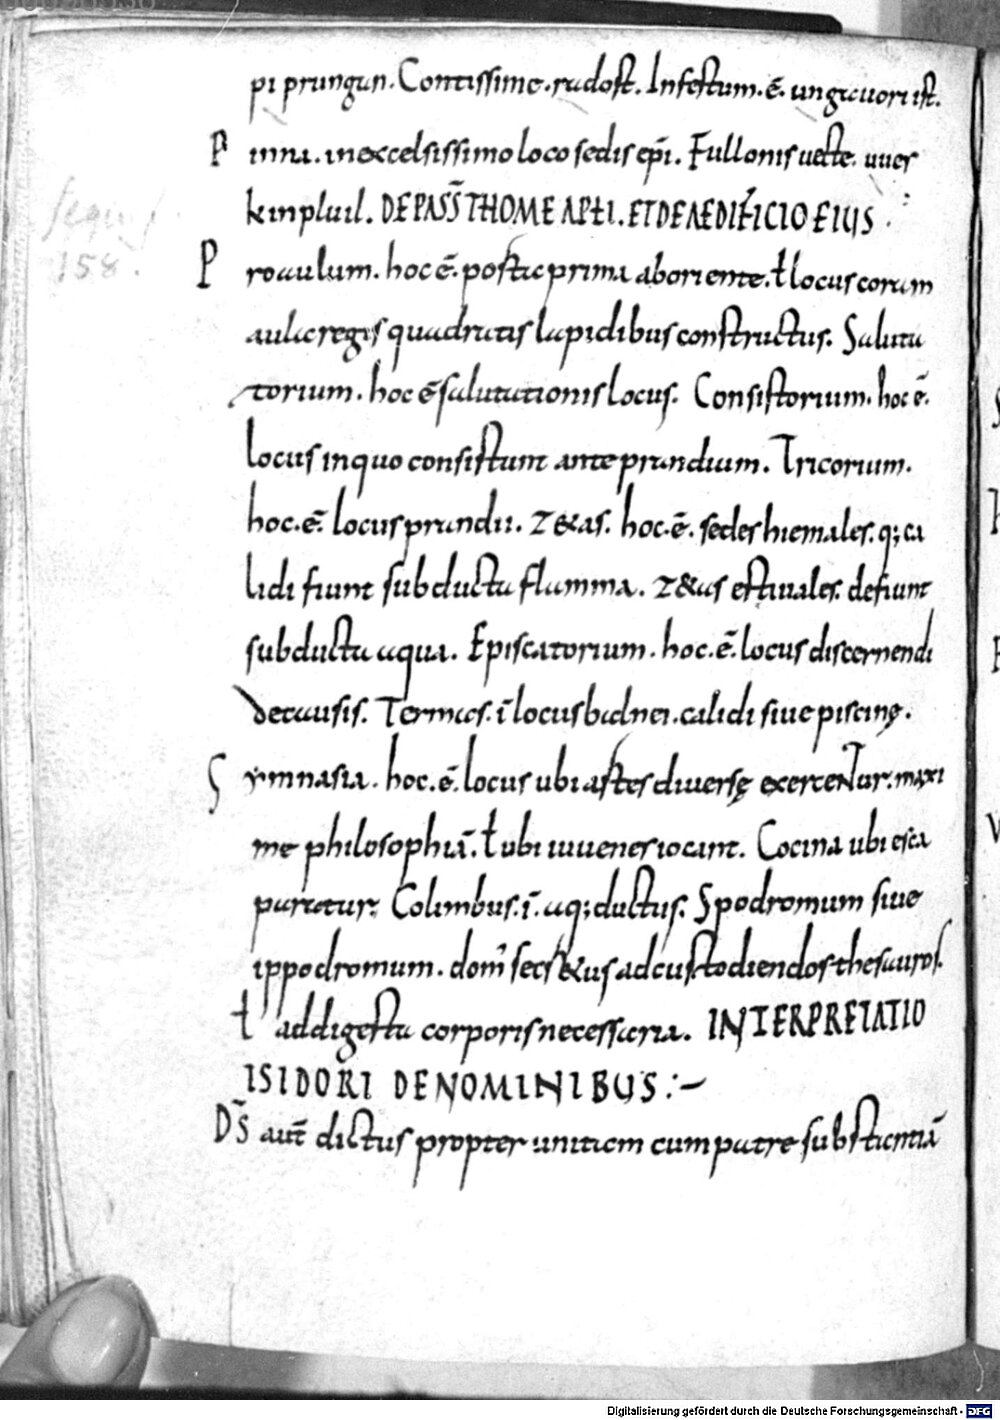 pi prungun. Contissime. radost. Infestum. ē. ungiuuorist.
P inna. in excelsissimo loco sedis epi̅. Fullonis uecte. uues
kinpluil. DE PASS̅ THOME APƚI. ET DE AEDIFICIO EIUS.
P roaulum. hoc ē. postica prima ab oriente. ƚ locus coram
aula regis quadratis lapidibus constructus. Saluta
torium. hoc ē salutationis locus. Consistorium. hoc ē.
locus in quo consistunt ante prandium. Tricorium.
hoc. ē. locus prandii. Z&as. hoc. ē. sedes hiemales. q; ca
lidi fiunt subducta flamma. Z&as estiuales. de fiunt
subducta aqua. Episcatorium. hoc. ē. locus discernendi
de causis. Termas. ī locus balnei. calidi siue piscinę.
G ymnasia. hoc. ē. locus ubi astes diuersę exercentur. maxi
me philosophiā. ƚ ubi iuuenes iocant. Cocina ubi esca
paratur. Colimbus. ī. aq; ductus. Spodromum siue
ippodromum. dom' secr&us ad custodiendos thesauros.
ƚ ad digesta corporis necessaria. INTERPRETATIO
ISIDORI DE NOMINIBUS :~
D̅S aut̅ dictus propter unitatem cum patre substantiā
sequi
158.
Digitalisierung gefördert durch die Deutsche Forschungsgemeinschaft - DFG